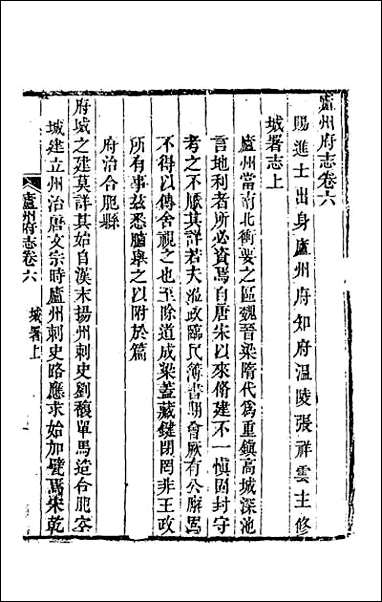 廬州府志卷六
賜進士出身廬州府知府溫陵張祥雲主修
城署志上
廬州當南北衝要之區魏晉梁隋代爲重鎮高城深池
言地利者所必資焉自唐宋以來脩建不一愼固封守
考之不厭其詳若夫涖政臨民簿書期會厥有公廨焉
不得以傳舍視之也至除道成梁蓋藏鍵閉罔非王政
所有事茲悉臚舉之以附於篇
府治合肥縣
府城之建莫詳其始自漢末揚州刺史劉馥單馬造合肥空
城建立州治唐文宗時廬州刺史路應求始加甓焉宋乾
廬州府志卷六
城署上